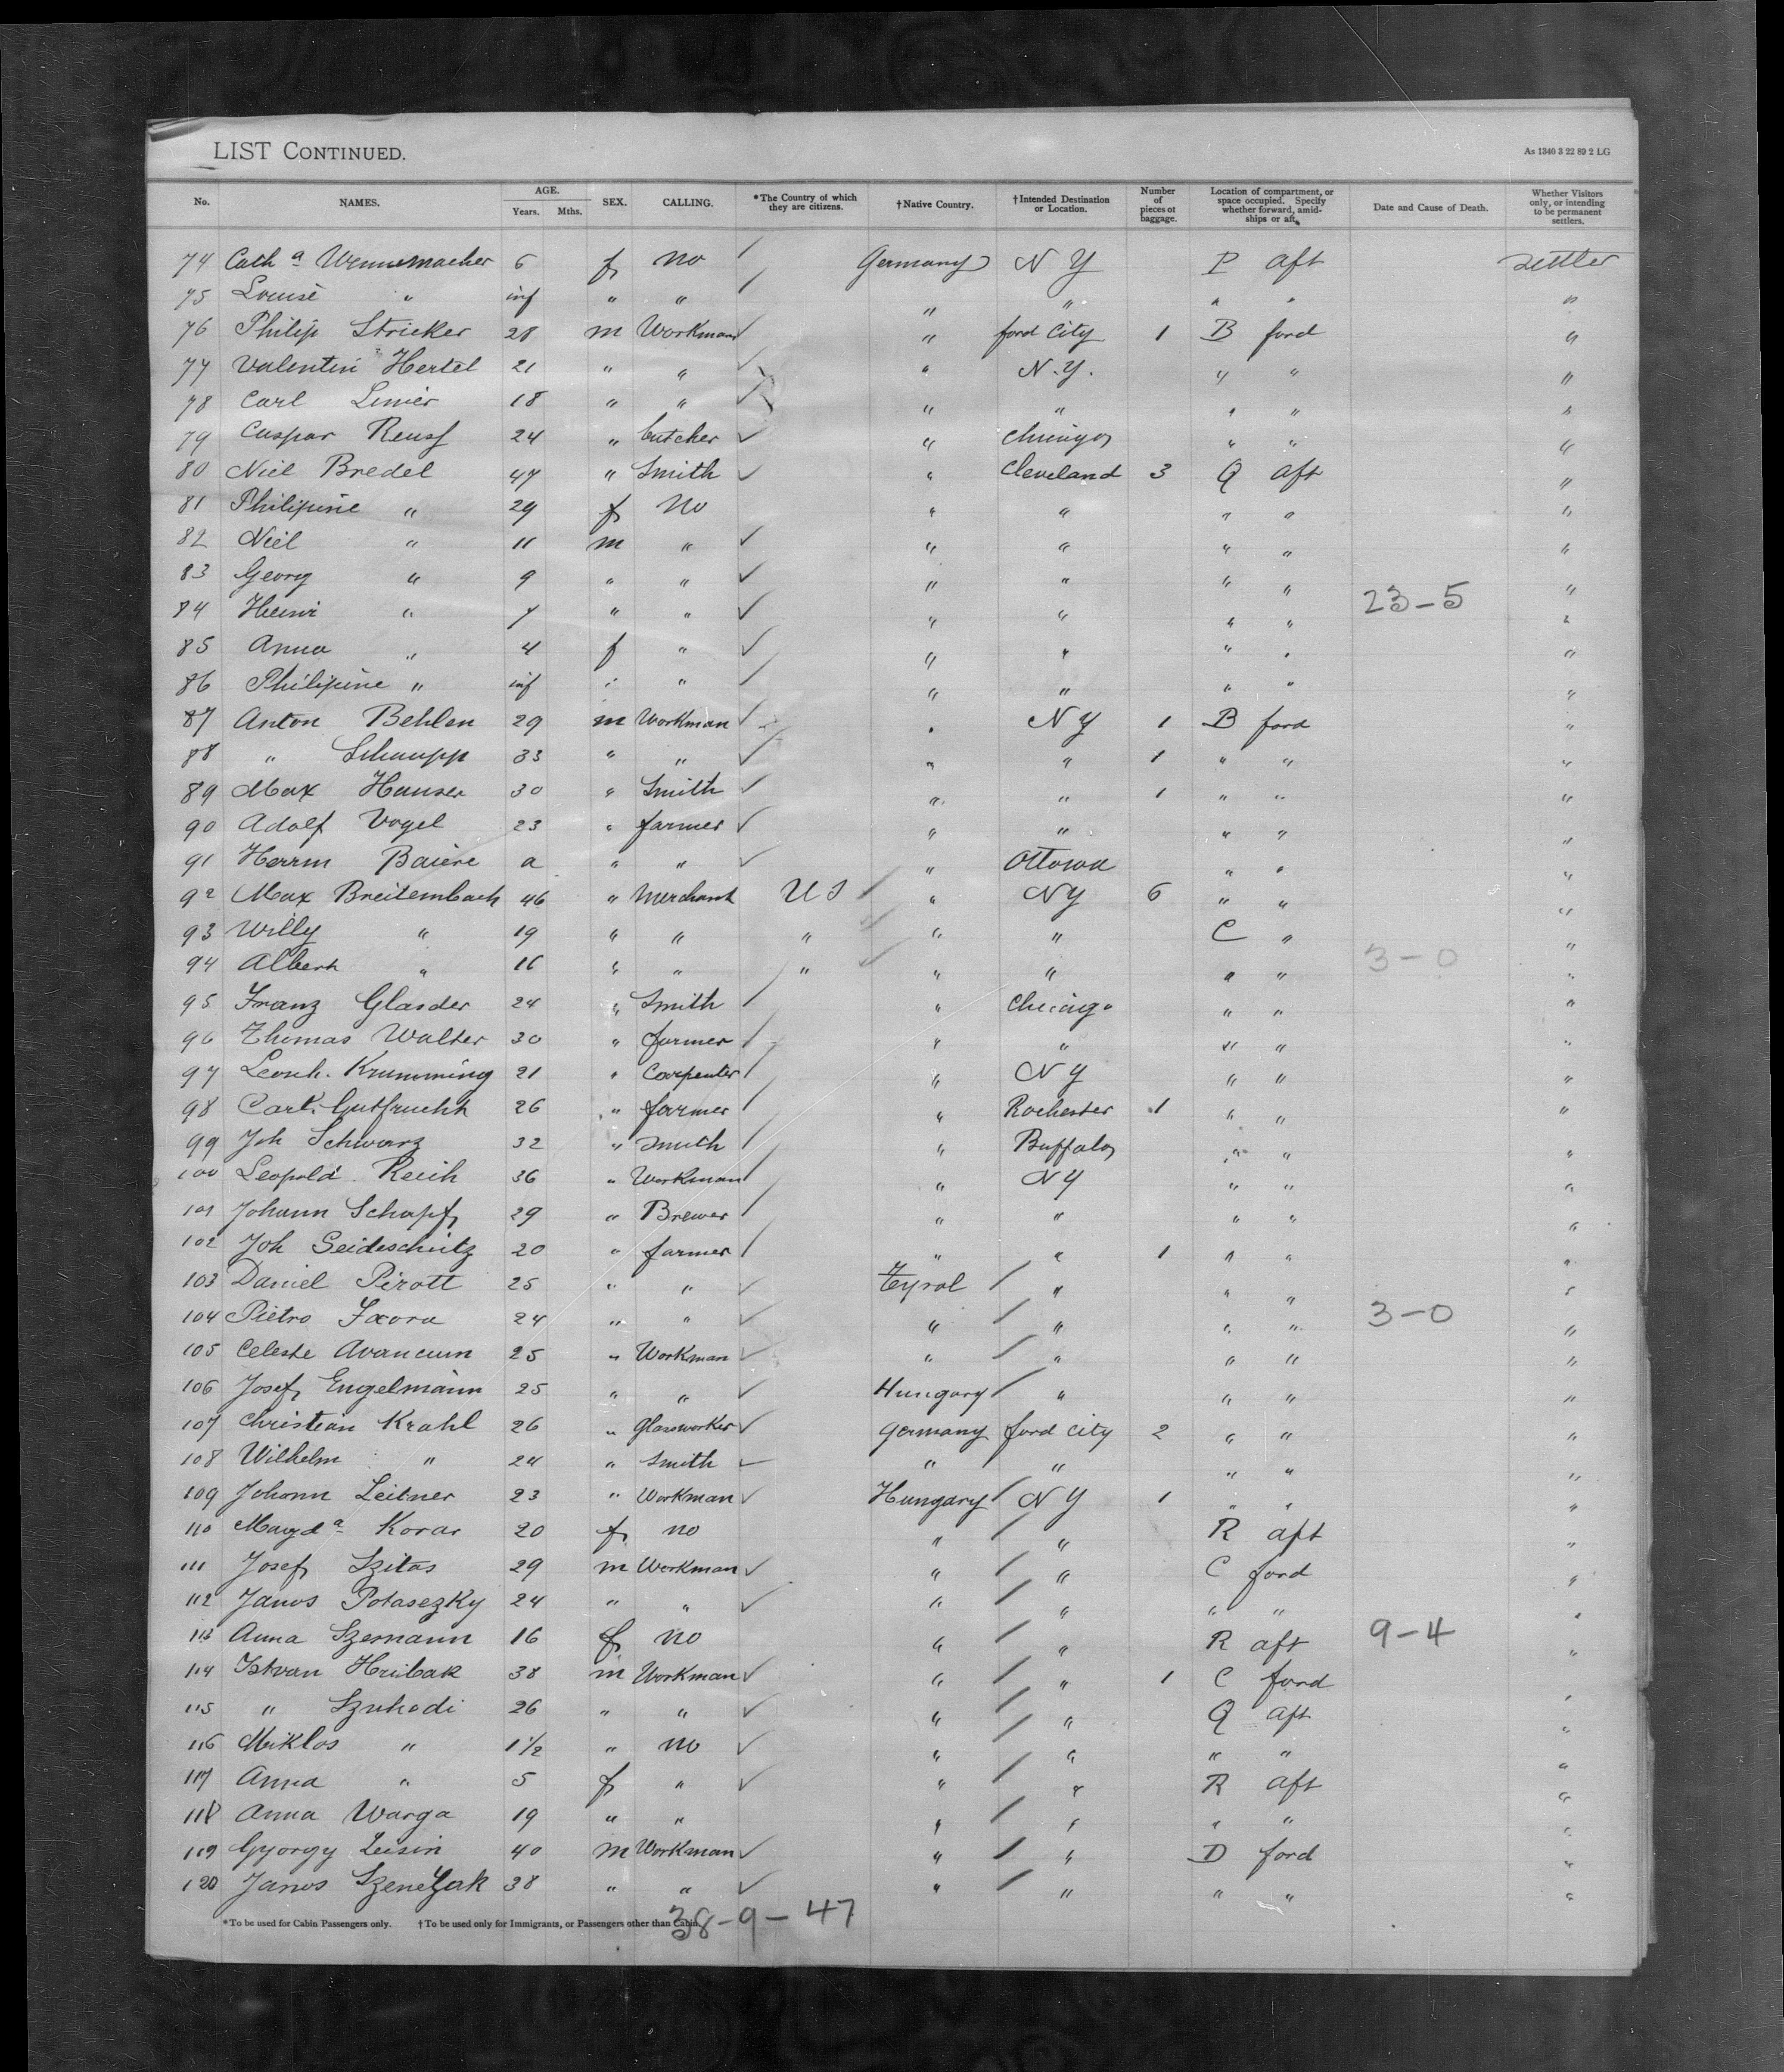 LIST CONTINUED.
As 1340 3 22 89 2 LG
No. NAMES. AGE. Years. Mths. SEX. CALLING. *The Country of which they are citizens. †Native Country. †Intended Destination or Location. Number of pieces of baggage. Location of compartment, or space occupied. Specify whether forward, amidships or aft. Date and Cause of Death. Whether Visitors only, or intending to be permanent settlers.
74 Cath a Wennemacher 6 f no Germany N Y P aft settler
75 Louise " inf " " " " " " "
76 Philip Stricker 28 m Workman " ford City 1 B ford "
77 Valentin Hertel 21 " " " N.Y. " " "
78 Carl 18 " " " " " " "
79 Caspar Reuss 24 " butcher " Chicago " " "
80 Niel Bredel 47 " Smith " Cleveland 3 Q aft "
81 Philipine " 29 f no " " " " "
82 Niel " 11 m " " " " " "
83 Georg " 9 " " " " " " "
84 " 7 " " " " " " 23-5 "
85 Anna " 4 f " " " " " "
86 Philipine " inf " " " " " " "
87 Anton Behlen 29 m Workman " N Y 1 B ford "
88 " Schaupp 33 " " " " 1 " " "
89 Max Hauser 30 " Smith " " 1 " " "
90 Adolf Vogel 23 " farmer " " " " "
91 Herrm Baiere a " " " Ottowa " " "
92 Max Breitembach 46 " Merchant U S " N Y 6 " " "
93 Willy " 19 " " " " " C " "
94 Albert " 16 " " " " " " " 3-0 "
95 Franz Glasder 24 " Smith " Chicago " " "
96 Thomas Walter 30 " farmer " " " " "
97 Leonh. Krumming 21 " Carpenter " N Y " " "
98 Carl Gutfrucht 26 " farmer " Rochester 1 " " "
99 Joh Schwarz 32 " Smith " Buffalo " " "
100 Leopold Reich 36 " Workman " N Y " " "
101 Johann Schopf 29 " Brewer " " " " "
102 Joh Seideschütz 20 " farmer " " 1 " " "
103 Daniel Pirott 25 " " Tyrol " " " "
104 Pietro 24 " " " " " " 3-0 "
105 Celeste Avancum 25 " Workman " " " " "
106 Josef Engelmann 25 " " Hungary " " " "
107 Christian Krahl 26 " Glassworker Germany ford City 2 " " "
108 Wilhelm " 24 " Smith " " " " "
109 Johann Leitner 23 " Workman Hungary N Y 1 " " "
110 Magd a Kovac 20 f no " " R aft "
111 Josef Szitas 29 m Workman " " C ford "
112 Janos Potaseszky 24 " " " " " " "
113 Anna Szemann 16 f no " " R aft 9-4 "
114 Istvan Hribak 38 m Workman " " 1 C ford "
115 " Szuhodi 26 " " " " Q aft "
116 Miklos " 1 1/2 " no " " " " "
117 Anna " 5 f " " " R aft "
118 Anna Warga 19 " " " " " " "
119 Gyorgy Leisin 40 m Workman " " D ford "
120 Janos 38 " " " " " " "
*To be used for Cabin Passengers only. †To be used only for Immigrants, or Passengers other than Cabin.
38-9-47